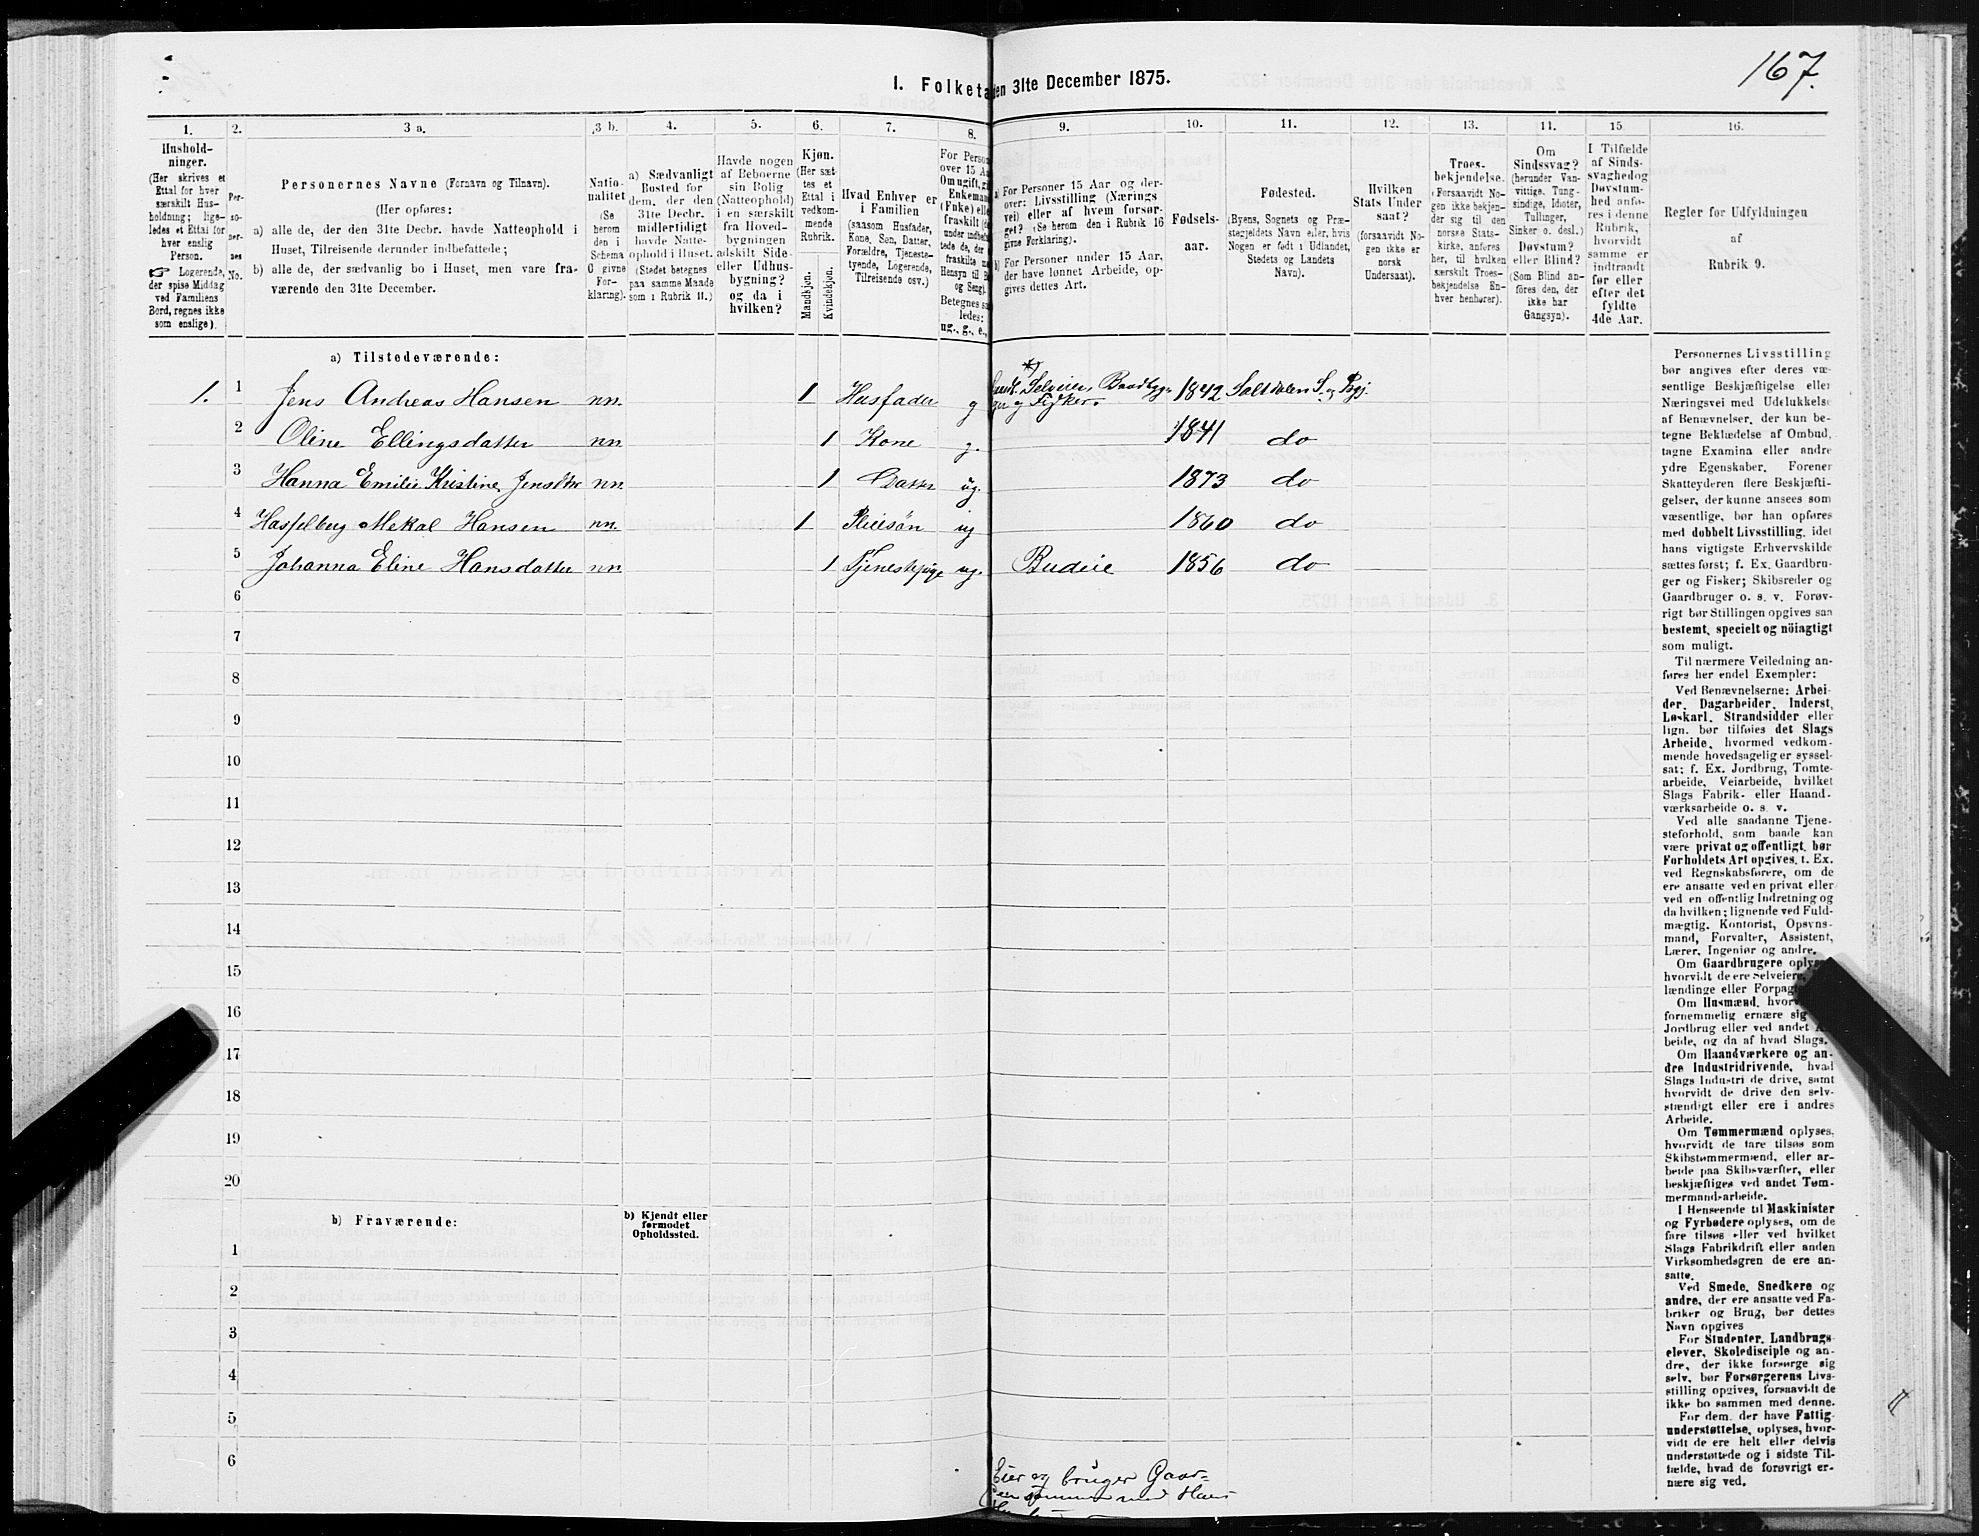 167.
1. Folketa en 31te December 1875.
1.
2.
3 a.
3 b.
4.
5.
6.
7.
8.
9.
10.
11.
12.
13.
14.
15
16.
Hushold-
ninger.
(Her skrives et
Ettal for hver
særskilt Hus-
holdning; lige-
ledes et Ettal for
hver enslig
Person.
☞ Logerende,
der spise Middag
ved Familiens
Bord, regnes ikke
som enslige).
Per-
so-
ner-
nes
No.
Personernes Navne (Fornavn og Tilnavn).
(Her opføres:
a) alle de, der den 31te Decbr. havde Natteophold i
Huset, Tilreisende derunder indbefattede;
b) alle de, der sædvanlig bo i Huset, men vare fra-
værende den 31te December.
Natio-
nalitet
(Se
herom
den i
Schema
C givne
For-
klaring).
a) Sædvanligt
Bosted for
dem, der den
31te Decbr.
midlertidigt
havde Natte-
ophold i Huset.
(Stedet betegnes
paa samme Maade
som i Rubrik 11.)
Havde nogen
af Beboerne
sin Bolig
(Natteophold)
i en særskilt
fra Hoved-
bygningen
adskilt Side-
eller Udhus-
bygning?
og da i
hvilken?
Kjøn.
(Her sæt-
tes et
Ettal i
vedkom-
mende
Rubrik.
Mandkjøn.
Kvindekjøn.
Hvad Enhver er
i Familien
(saasom Husfader,
Kone, Søn, Datter,
Forældre, Tjeneste-
tyende, Logerende,
Tilreisende osv.)
For Person
over 15 Aa
Om ugift, gi
Enkemand
(Enke) elle
fraskilt (
under indbefa
tede de, der
fraskilte m
Hensyn til B
og Seng).
Betegnes saa
ledes:
ug., g., e.,
a) For Personer 15 Aar og der-
over: Livsstilling (Nærings
vei) eller af hvem forsør-
get? (Se herom den i Rubrik 16
givne Forklaring).
b) For Personer under 15 Aar,
der have lønnet Arbeide, op-
gives dettes Art.
Fødsels-
aar.
Fødested.
(Byens, Sognets og Præ-
stegjeldets Navn eller, hvis
Nogen er født i Udlandet,
Stedets og Landets
Navn).
Hvilken
Stats Under
saat?
(forsaavidt No-
gen ikke er
norsk
Undersaat).
Troes-
bekjendelse.
(Forsaavidt No-
gen ikke bekjen-
der sig til den
norske Stats-
kirke, anføres
her, til hvilken
særskilt Troes-
bekjendelse En-
hver henhører).
Om
Sindssvag?
(herunder Van-
vittige, Tung-
sindige, Idioter,
Tullinger,
Sinker o. desl.)
Døvstum?
eller Blind?
(Som Blind an-
føres den, der
ikke har
Gangsyn).
I Tilfælde
af Sinds-
svaghed og
Døvstum-
hed anfø-
res i denne
Rubrik,
hvorvidt
samme er
indtraadt
før eller
efter det
fyldte
4de Aar.
Regler for Udfyldningen
af
Rubrik 9.
a) Tilstedeværende:
1. 1 Jens Andreas Hansen nn. 1 Husfader g *) Selveier, Baadbyg- 1842 Saltdalen S. og Pgj.
og Fisker.
2 Oline Ellingsdatter nn 1 Kone g. 1841 do
3 Hanna Emilie Kristine Jensdtr nn. 1 Datter ug. 1873 do
4 Hasselberg Mekal Hansen nn. 1 Pleiesøn ug 1860 do
5 Johanna Eline Hansdatter nn 1 Tjenestepige ug. Budeie 1856 do
6
7
8
9
10
11
12
13
14
15
16
17
18
19
20
b) Fraværende:
b) Kjendt eller
formodet
Opholdssted.
1
2
3
4
5
6
Eier og bruger Gaar-
den sammen med Hans
Personernes Livsstilling
bør angives efter deres væ-
sentlige Beskjæftigelse eller
Næringsvei med Udelukkelse
af Benævnelser, der kun be-
tegne Beklædelse af Ombud,
tagne Examina eller andre
ydre Egenskaber. Forener
Skatteyderen flere Beskjæfti-
gelser, der kunne ansees som
væsentlige, bør han opføres
med dobbelt Livsstilling, idet
hans vigtigste Erhvervskilde
sættes først; f. Ex. Gaardbru-
ger og Fisker; Skibsreder og
Gaardbruger o. s. v. Forøv-
rigt bør Stillingen opgives saa
bestemt, specielt og nöiagtigt
som muligt.
Til nærmere Veiledning an-
føres her endel Exempler:
Ved Benævnelserne: Arbei-
der, Dagarbeider, Inderst,
Løskarl, Strandsidder eller
lign. bør tilføies det Slags
Arbeide, hvormed vedkom-
mende hovedsagelig er syssel-
sat; f. Ex. Jordbrug, Tomte-
arbeide, Veiarbeide, hvilket
Slags Fabrik- eller Haand-
værksarbeide o. s. v.
Ved alle saadanne Tjene-
steforhold, som baade kan
være privat og offentligt, bør
Forholdets Art opgives, t. Ex.
ved Regnskabsførere, om de
ere ansatte ved en privat eller
ved en offentlig Indretning og
da hvilken; lignende ved Fuld-
mægtig, Kontorist, Opsyns-
mand, Forvalter, Assistent,
Lærer, Ingeniør og andre.
Om Gaardbrugere oplyse
hvorvidt de ere Selveiere,
lændinge eller Forpagt
Om Husmænd, hvor
fornemmelig ernære sig
Jordbrug eller ved andet A
beide, og da af hvad Slags.
Om Haandværkere og an-
dre Industridrivende, hvad
Slags Industri de drive, samt
hvorvidt de drive den selv-
stændigt eller ere i andres
Arbeide.
Om Tømmermænd oplyses,
hvorvidt de fare tilsøs som
Skibstømmermænd, eller ar-
beide paa Skibsværfter, eller
beskjæftiges ved andet Tøm-
mermandsarbeide.
I Henseende til Maskinister
og Fyrbødere oplyses, om de
fare tilsøs eller ved hvilket
Slags Fabrikdrift eller anden
Virksomhedsgren de ere an-
satte.
Ved Smede, Snedkere og
andre, der ere ansatte ved Fa-
briker og Brug, bør dettes
Navn opgives
For Studenter, Landbrugs-
elever, Skoledisciple og an-
dre, der ikke forsørge sig
selv, bør Forsørgerens Livs-
stilling opgives, forsaavidt de
ikke bo sammen med denne.
For dem, der have Fattig-
understøttelse, oplyses, hvor-
vidt de ere helt eller delvis
understøttede og i sidste Til-
fælde, hvad de forøvrigt er-
nære sig ved.